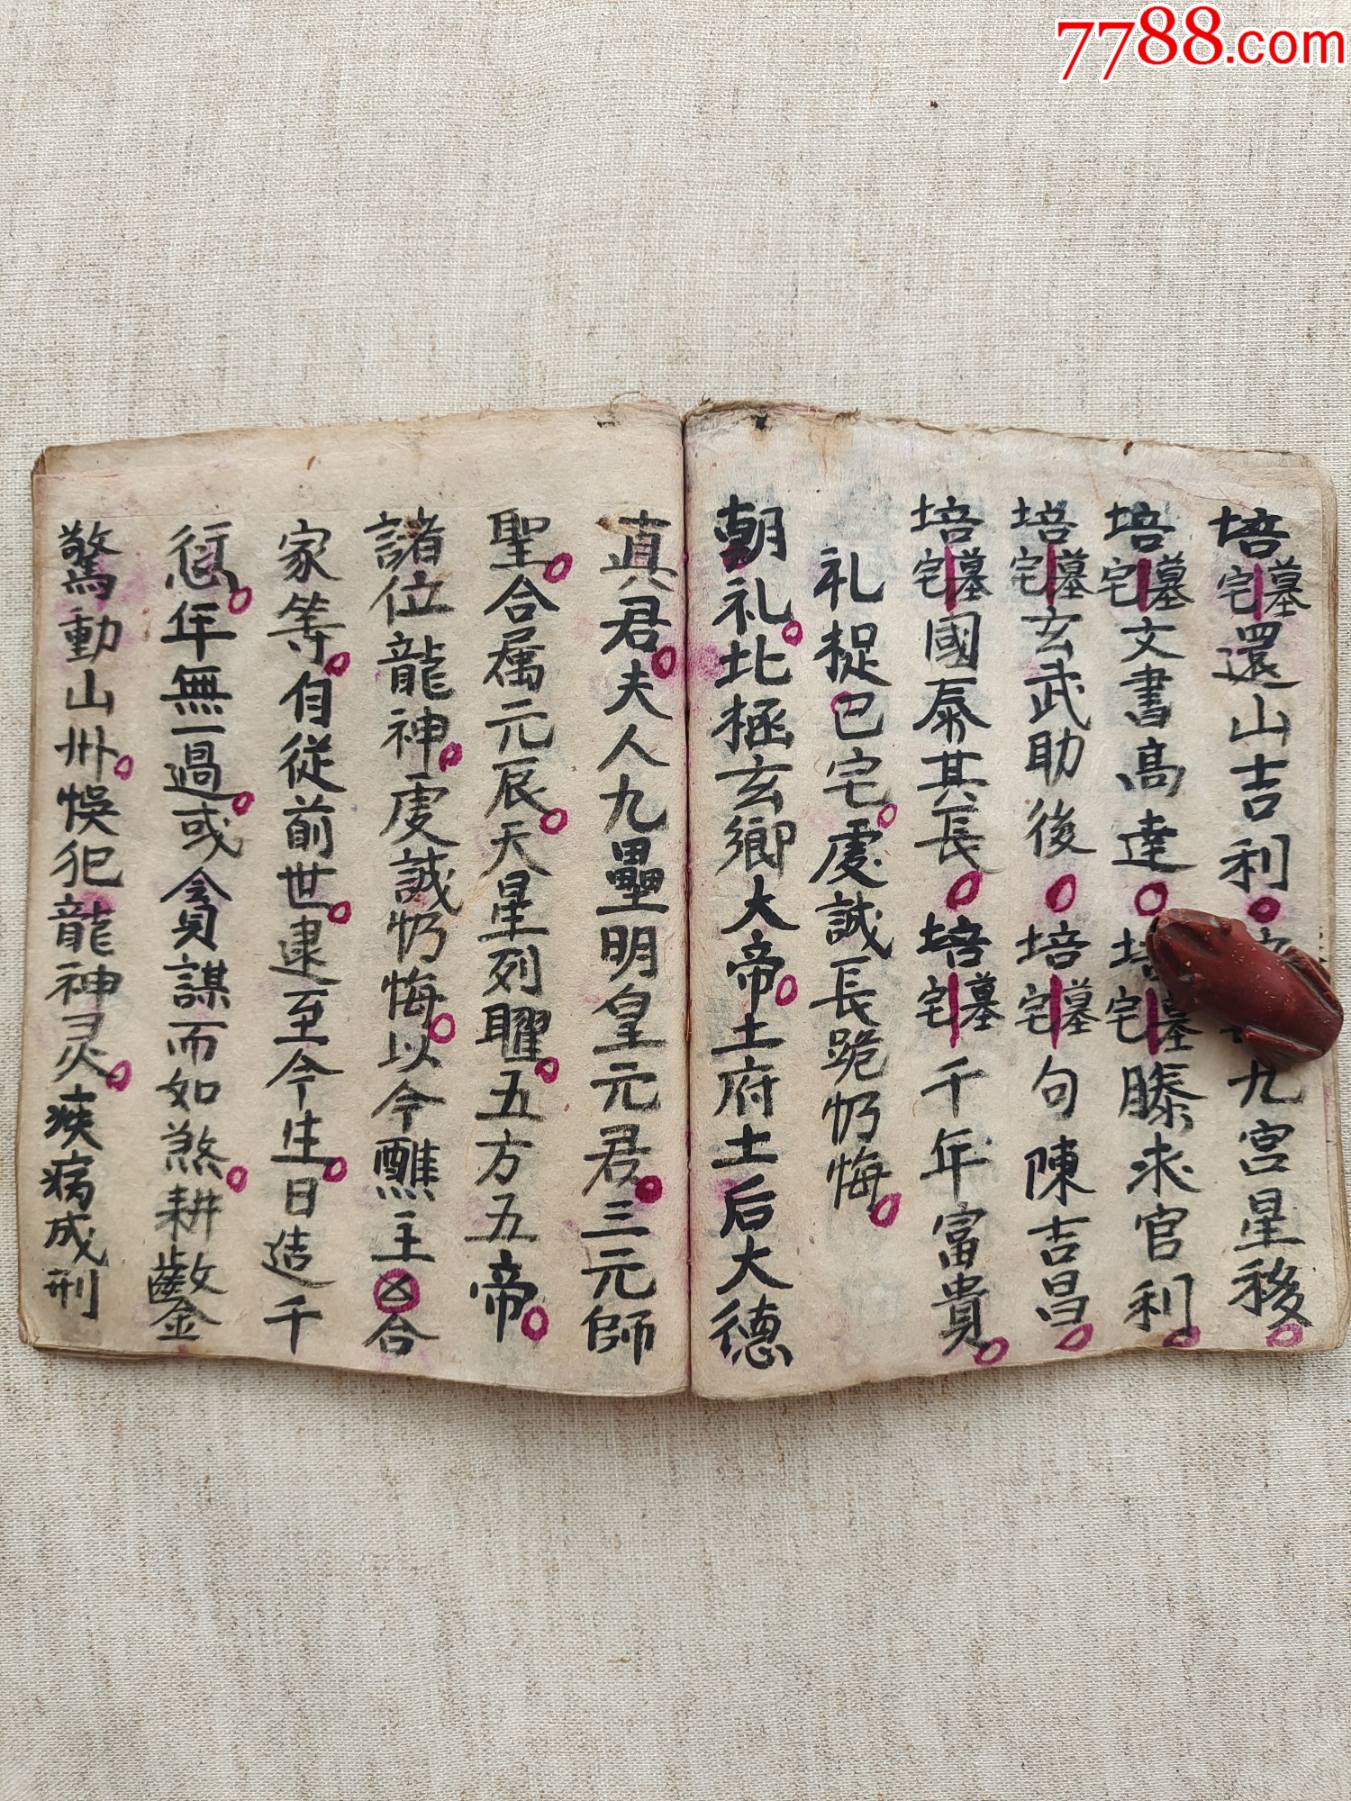 7788.com
培宅墓還山吉利九宮星移
培宅墓文書高達培宅墓滕求官利
培宅墓玄武助後培宅墓句陳吉昌
培宅墓國泰其長培宅墓千年富貴
礼捉已宅虔誠長跪礽悔
朝礼北極玄鄉大帝土府土后大德
真君夫人九壘明皇元君三元師
聖合属元辰天星列曜五方五帝
諸位龍神虔誠礽悔以今醮主凶合
家等自從前世逮至今生日造千
愆年無一過或貪謀而如煞耕鑿
驚動山卅悞犯龍神灵疾病成刑